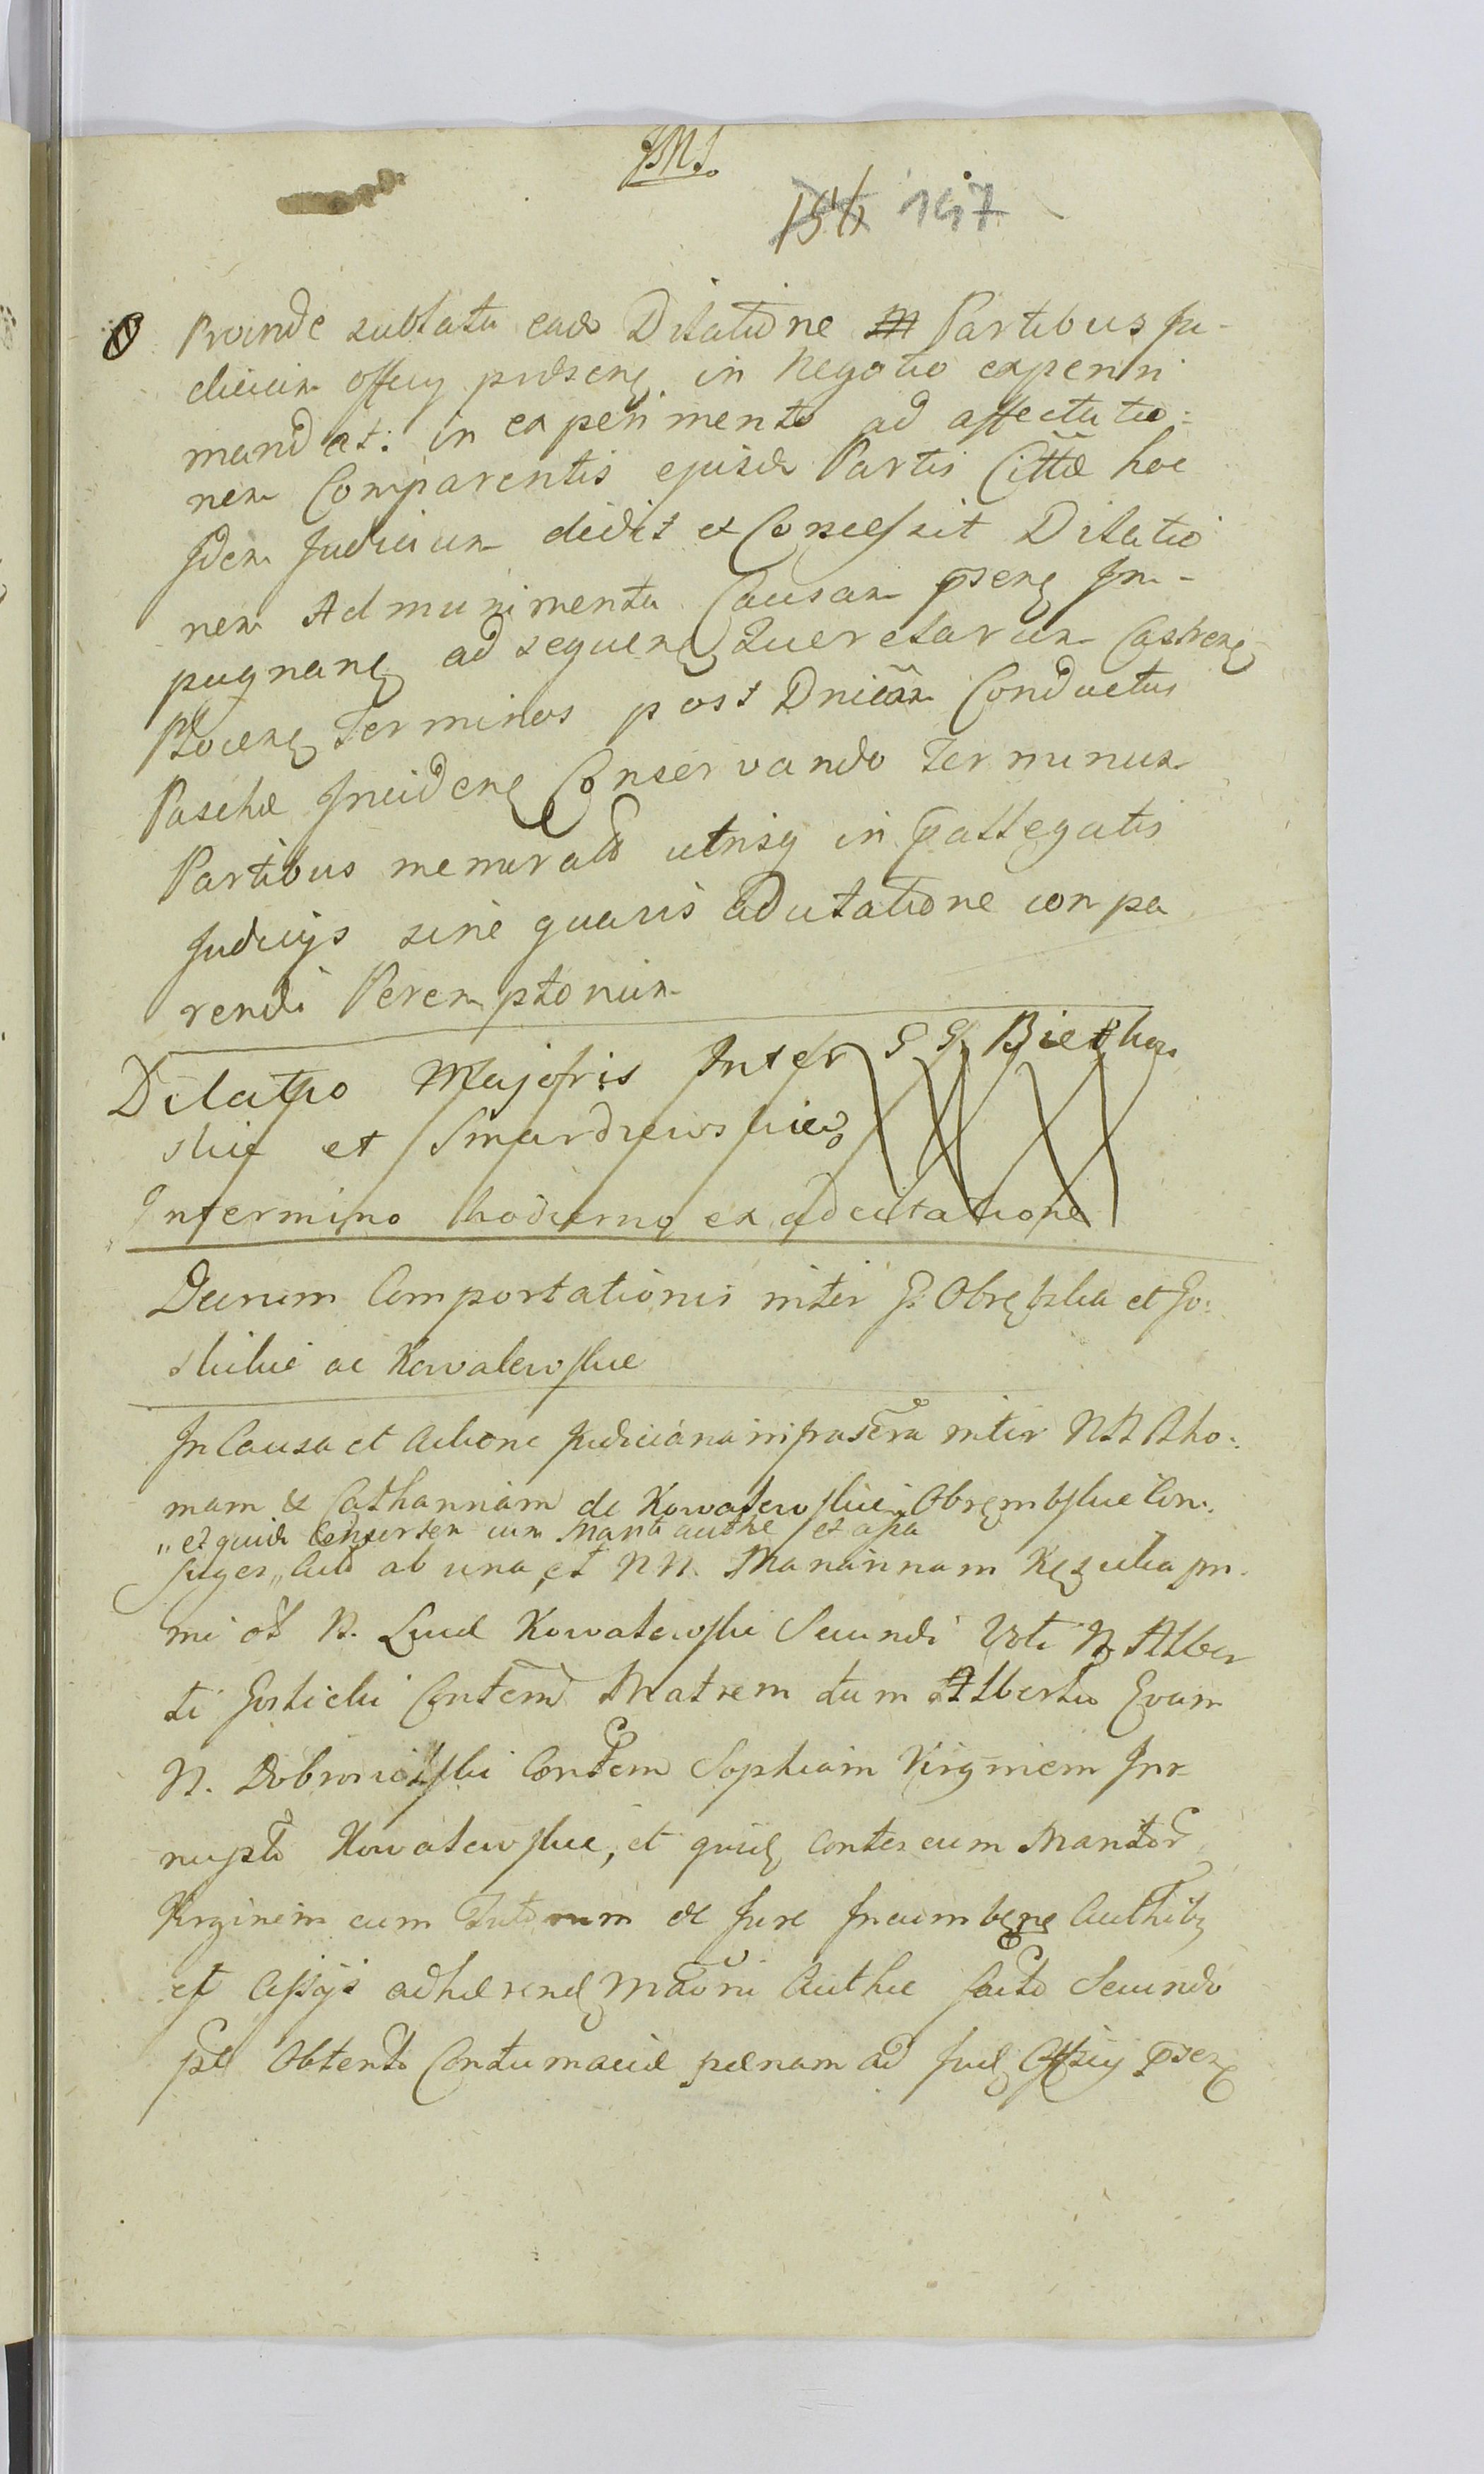 JMJ.
156 157
Proinde sublata ead Dilatione Partibus Ju-
dicium officij praesen in Negotio experiri
mandat: in experimento ad affectatio=
nem Comparentis ejusd Partis Cittae hoc
Idem Judicium dedit et Concessit Dilatio
nem Ad munimenta Causam psen Im-
pugnan ad sequen Querelarum Castren
Plocen Terminos post Dnicam Conductus
Paschae Inciden Conservando Terminum
Partibus memorat utrisq in pallegatis
Judicijs sine quavis adcitatione compa
rendi Peremptorium
Dilatio Majoris Inter GG Bielskie
et
In termino hodierno ex adcitatione
Decrum Comportationis inter G. Obrębska et Go:
skikie ac Kowalewskie
In Causa et Actione Judiciaria infrascra inter NN Tho:
mam & Catharinam de Kowalewskie Obrembskie Con:
"et quidem Consortem cum Mariti authe et assa
juges" Act ab una, et NN. Mariannam pri
mi ot N. Lucae Kowalewski Secundi Voti N Alber
ti Gosticki Contem Matrem tum Albertum Evam
N. Contem Sophiam Virginem In-
nupt Kowalewskie, et quid contes cum Maritor
Virginem cum Tutorum de Jure Incumben Authtib
et assijs adhaeren Maori Authe facto Secundo
pt Obtent Contumaciae paenam ad Jud Officij psen